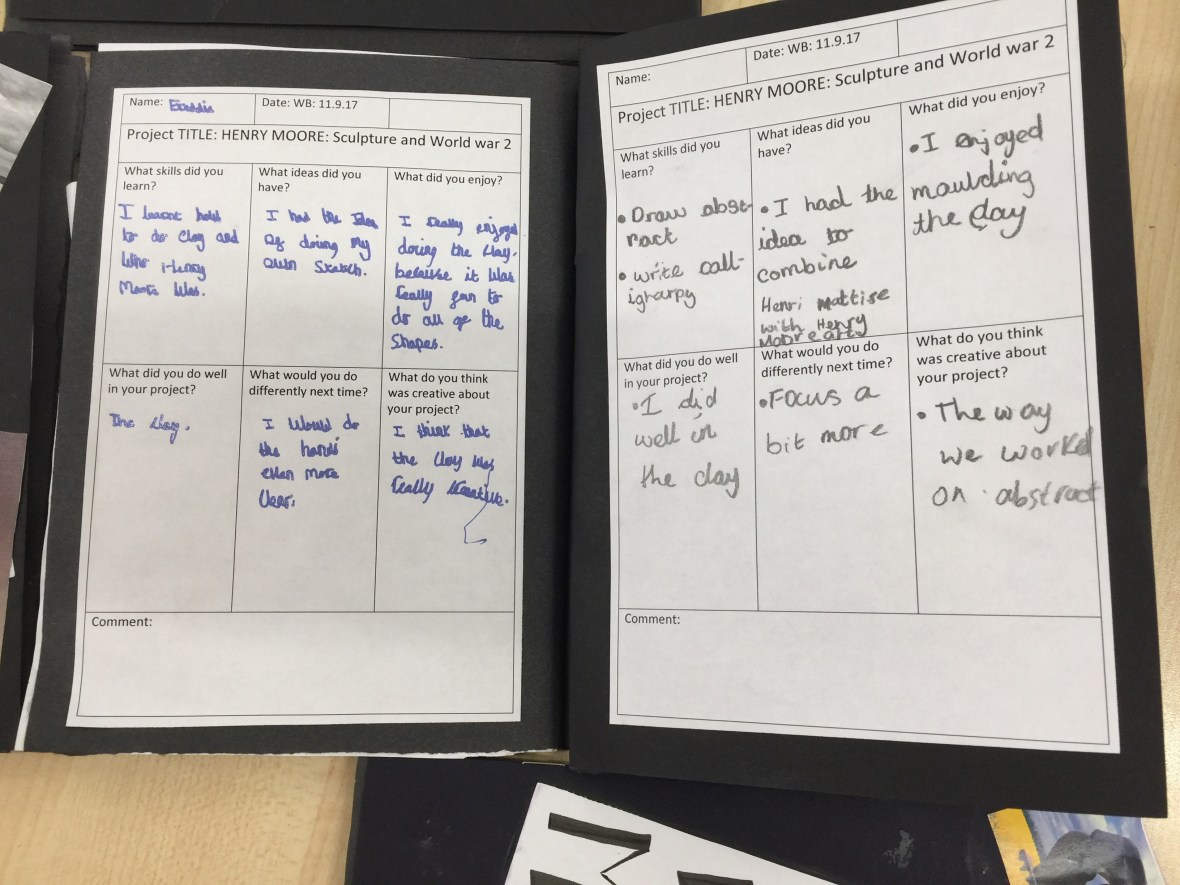 Name:
Date: WB: 11.9.17
Project TITLE: HENRY MOORE: Sculpture and World war 2
What skills did you
learn?
I learnt how
to do Clay and
Who Henry
Moore Was.
What ideas did you
have?
I had the Idea
of doing my
own Sketch.
What did you enjoy?
I really enjoyed
doing the Clay.
because it Was
really fun to
do all of the
Shapes.
What did you do well
in your project?
The Clay.
What would you do
differently next time?
I Would do
the hands
even more
Clear.
What do you think
was creative about
your project?
I think that
the Clay Was
really Creative.
Comment:
Name:
Date: WB: 11.9.17
Project TITLE: HENRY MOORE: Sculpture and World war 2
What skills did you
learn?
• Draw abst-
ract
• write call-
igrarpy
What ideas did you
have?
• I had the
idea to
combine
Henri Mattise
with Henry
Moore arty
What did you enjoy?
• I enjoyed
maulding
the clay
What did you do well
in your project?
• I did
well in
the clay
What would you do
differently next time?
• Focus a
bit more
What do you think
was creative about
your project?
• The way
we worked
on abstract
Comment: